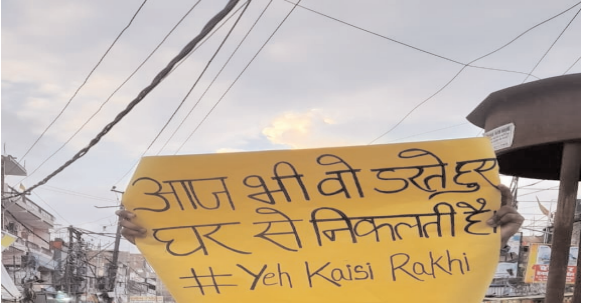 आज भी वो डरते हुए
घर से निकलती है
#Yeh Kaisi Rakhi